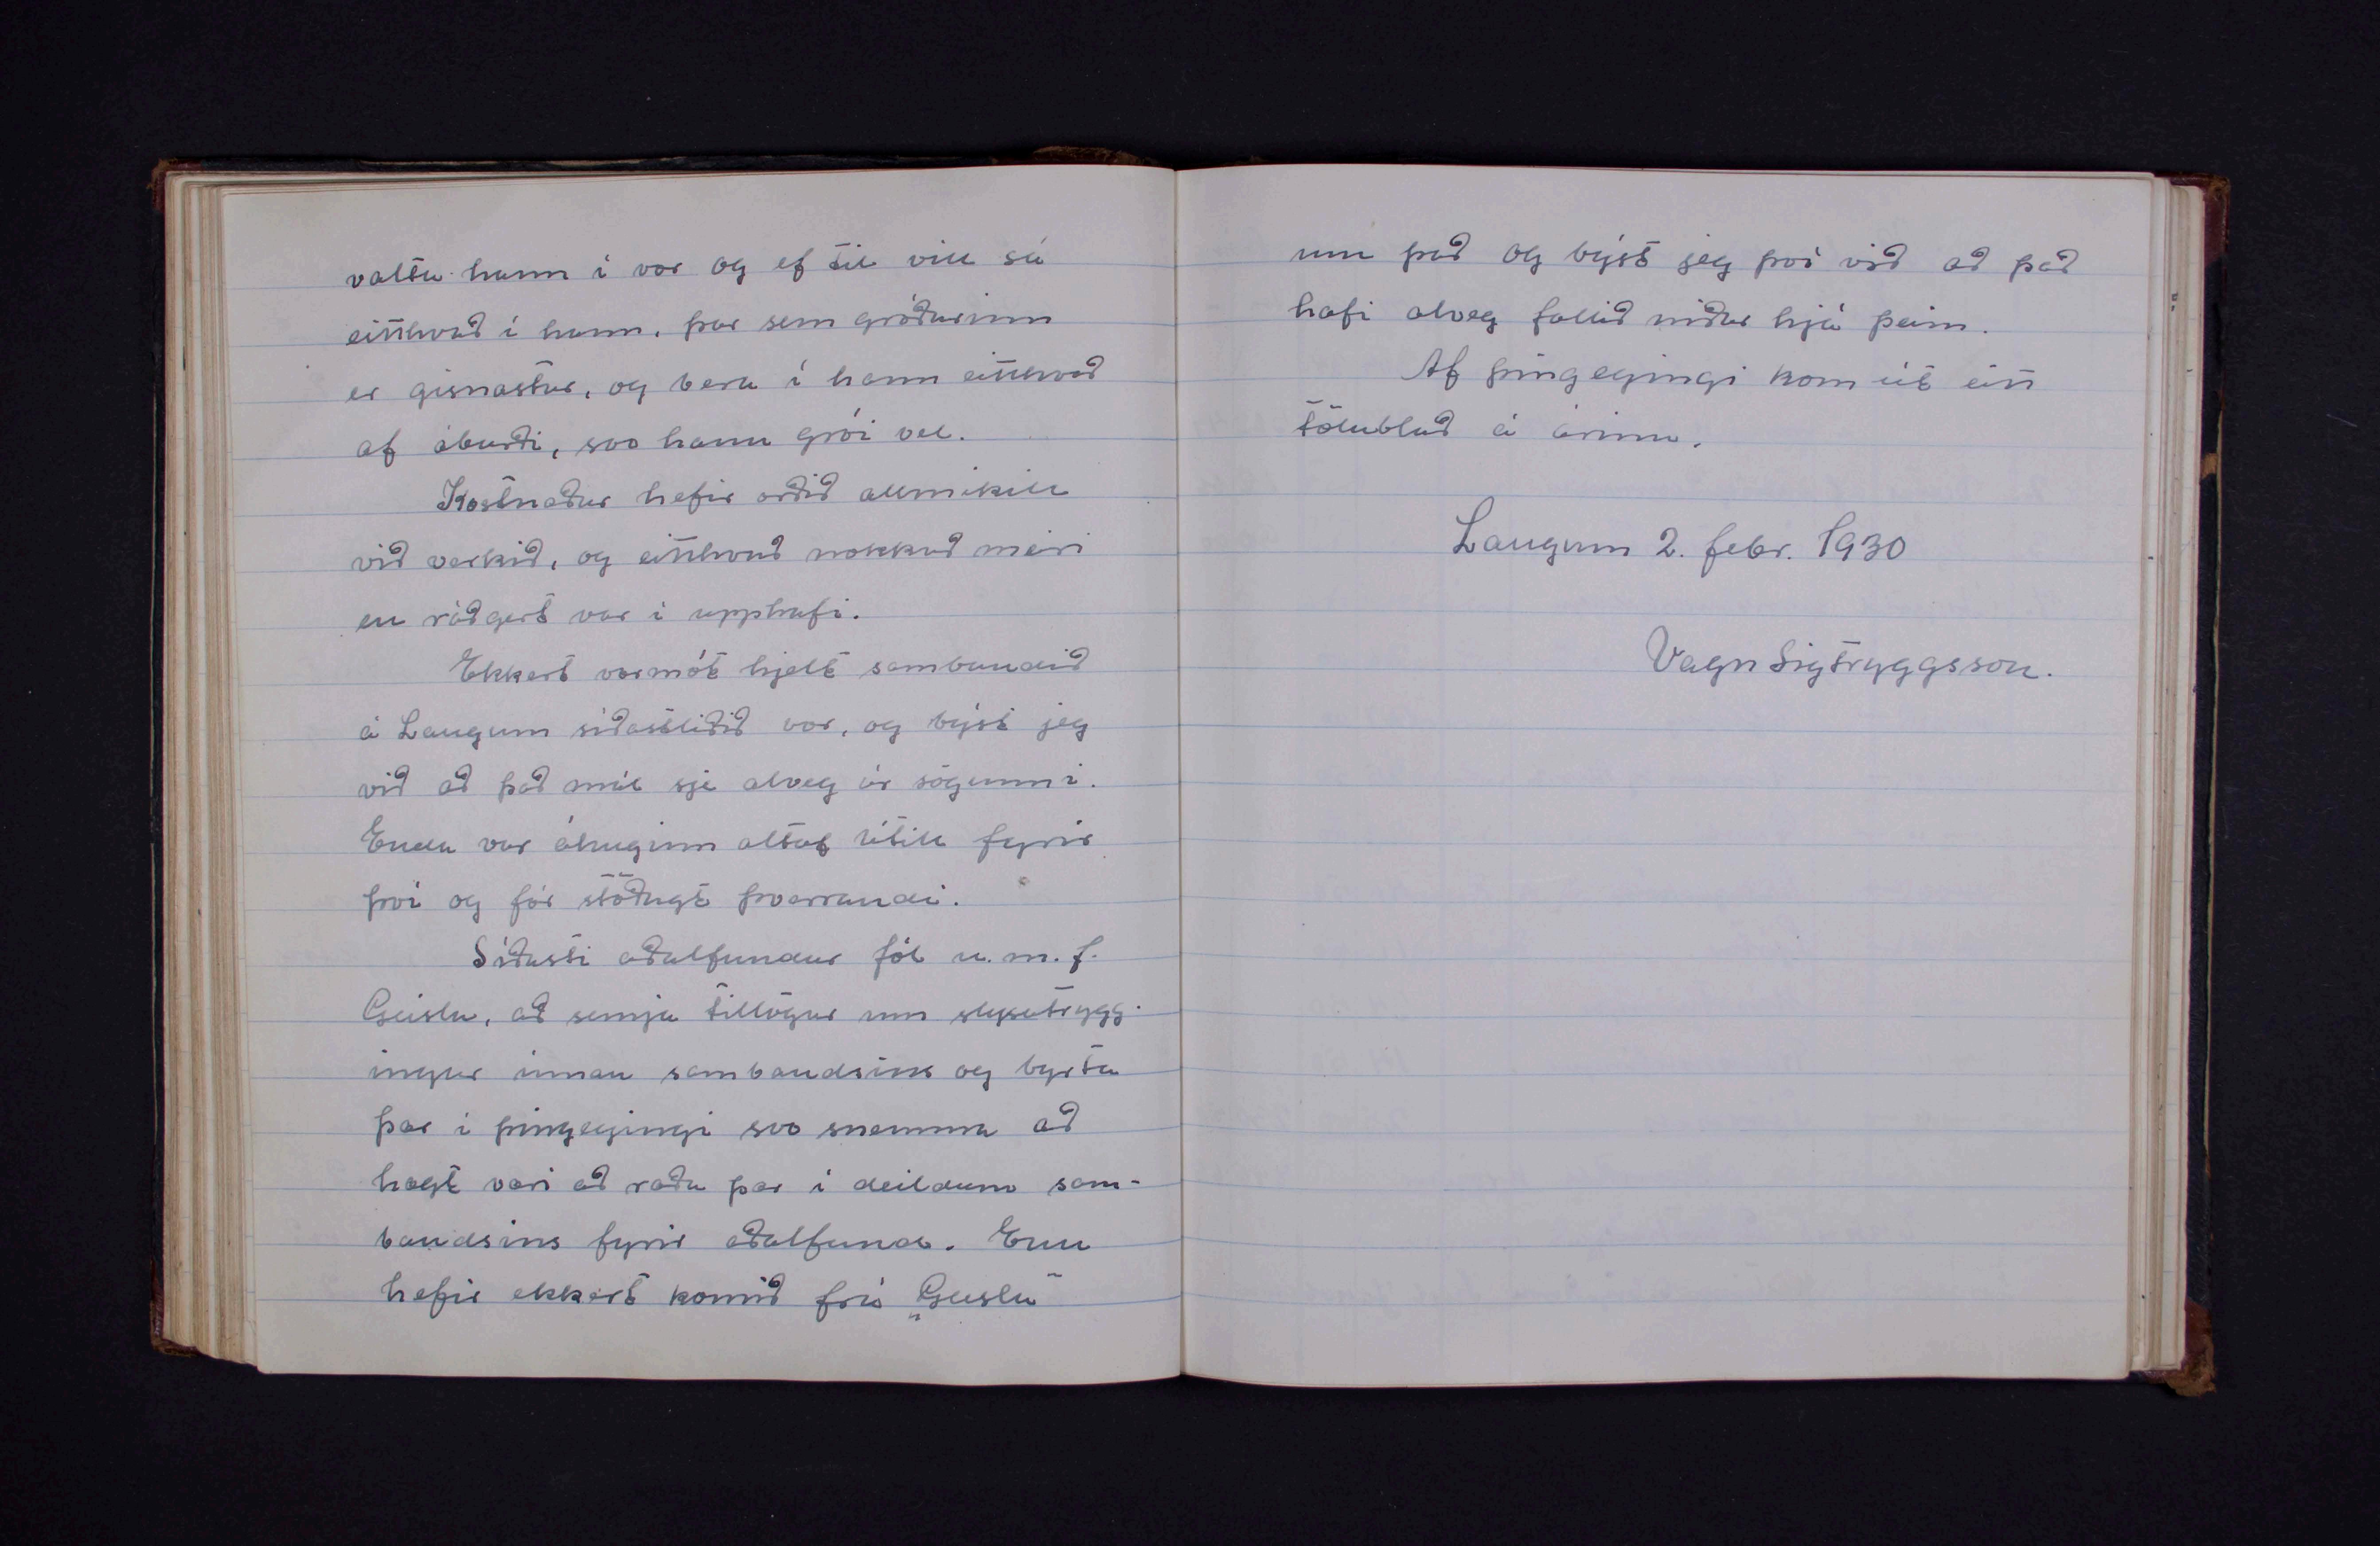 valta hann í vor og ef til vill sá
eitthvað í hann, þar sem gróðurinn
er gisnastur, og bera í hann eitthvað
af áburði, svo hann grói vel.
Kostnaður hefir orðið allmikill
við verkið, og eitthvað nokkuð meiri
en ráðgert var í upphafi.
Ekkert vormót hjelt sambandið
á Laugum síðastliðið vor, og býst jeg
við að það mál sje alveg úr sögunni.
Enda var áhuginn altaf lítill fyrir
því og fór stöðugt þverrandi.
Síðasti aðalfundur fól u.m.f.
Geisla, að semja tillögur um slysatrygg-
ingar innan sambandsins og byrta
þær í þingeyingi svo snemma að
hægt væri að ræða þær í deildum sam-
bandsins fyrir aðalfund. Enn
hefir ekkert komið frá „Geisla“
um það og býst jeg því við að það
hafi alveg fallið niður hjá þeim.
Af þingeyingi kom út eitt
tölublað á árinu.
Laugum 2. febr. 1930
Vagn Sigtryggsson.